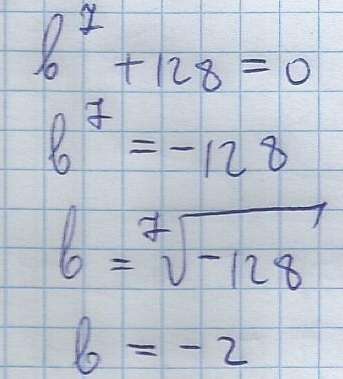 b⁷ + 128 = 0
b⁷ = -128
b = ⁷√-128
b = -2